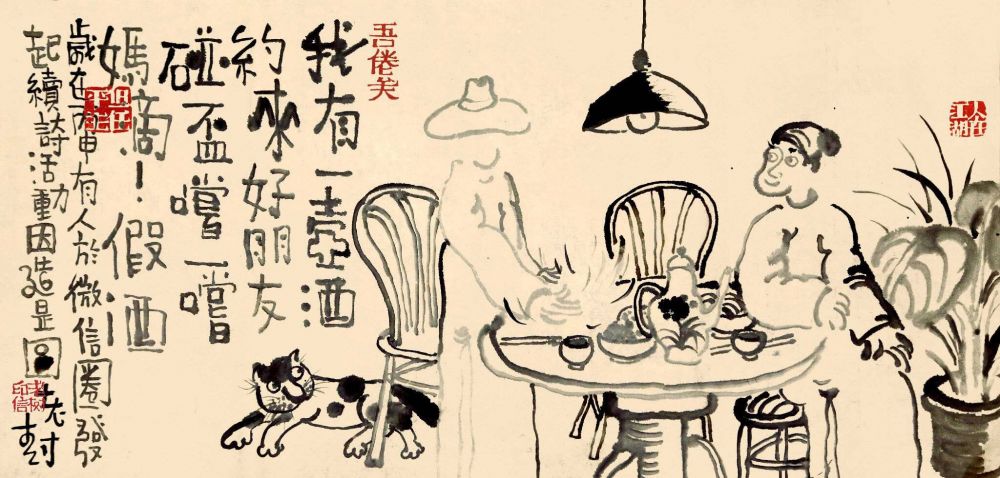 吾倦矣
我有一壺酒
約來好朋友
碰盃嚐一嚐
媽滴！假酒
歲在丙申有人於微信圈發
起續詩活動因造是圖老樹
人在江湖
老树印信